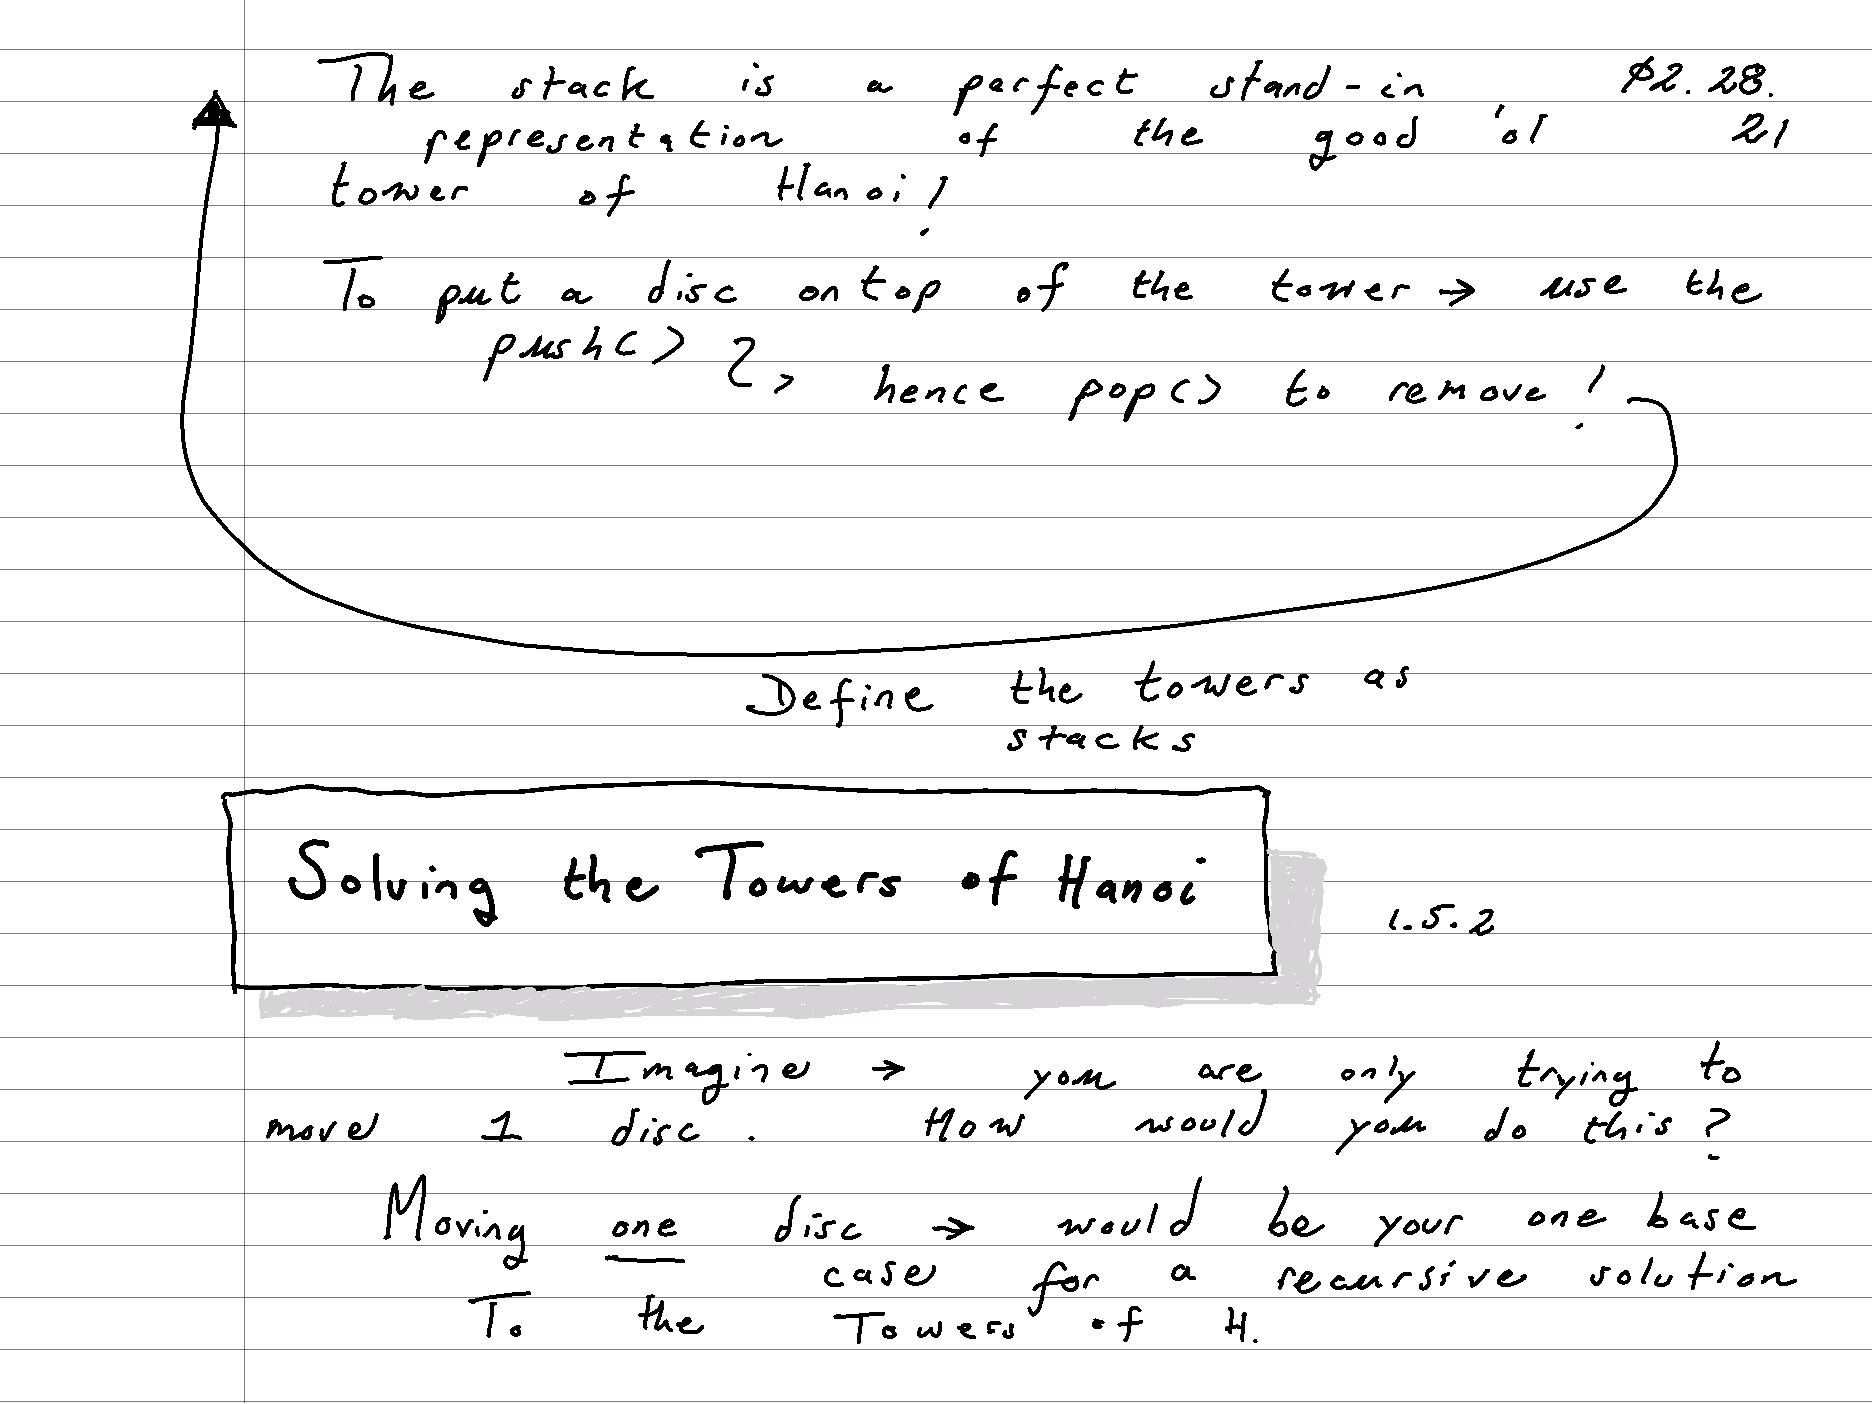 The stack is a perfect stand-in
representation of the good 'ol
tower of Hanoi!
To put a disc ontop of the tower → use the
push()
hence pop() to remove!
Define the towers as
stacks
Solving the Towers of Hanoi
1.5.2
Imagine → you are only trying to
move 1 disc. How would you do this?
Moving one disc → would be your one base
case for a recursive solution
To the Towers of H.